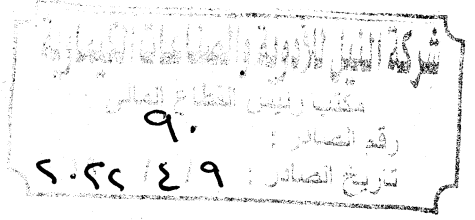 شركة النيل للأدوية والصناعات الكيماوية
مكتب رئيس القطاع المالى
رقم الصادر : ٩٠
تاريخ الصادر : ٩ / ٤ / ٢٠٢٢